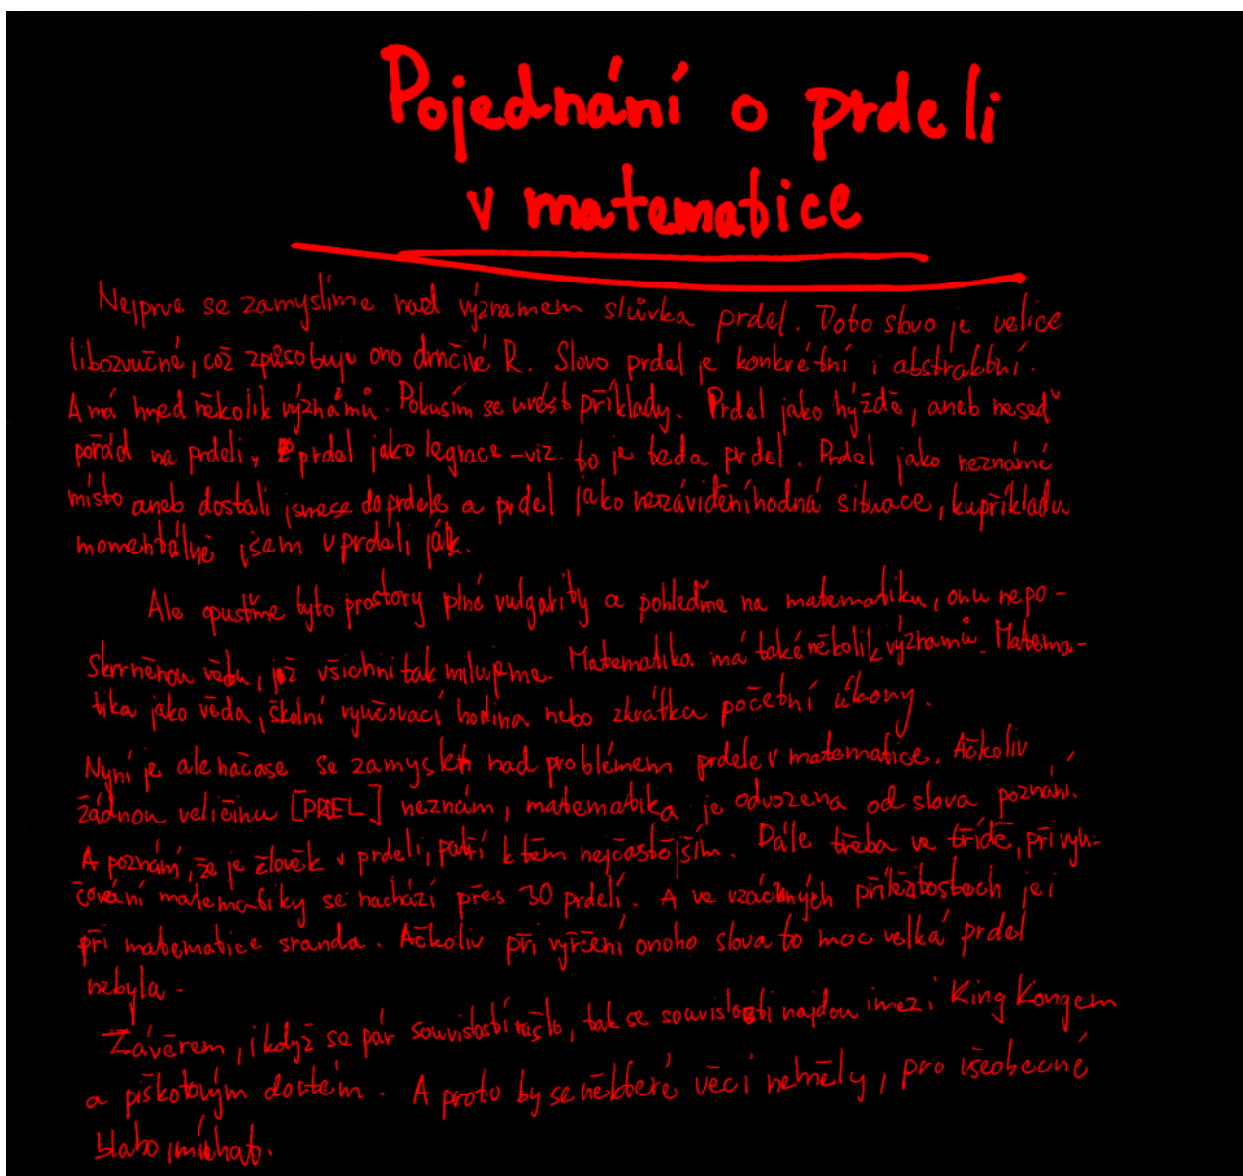 Pojednání o prdeli
v matematice
Nejprve se zamyslíme nad významem slůvka prdel. Toto slovo je velice
libozvučné, což způsobuje ono drnčivé R. Slovo prdel je konkrétní i abstraktní.
A má hned několik významů. Pokusím se uvést příklady. Prdel jako hýždě, aneb neseď
pořád na prdeli, prdel jako legrace - viz. to je teda prdel. Prdel jako neznámé
místo aneb dostali jsme se do prdele a prdel jako nezáviděníhodná situace, kupříkladu
momentálně jsem v prdeli ják.
Ale opusťme tyto prostory plné vulgarity a pohleďme na matematiku, onu nepo-
skvrněnou vědu, již všichni tak milujeme. Matematika má také několik významů. Matema-
tika jako věda, školní vyučovací hodina nebo zkrátka početní úkony.
Nyní je ale načase se zamyslet nad problémem prdele v matematice. Ačkoliv
žádnou veličinu [PRDEL] neznám, matematika je odvozena od slova poznání.
A poznání, že je člověk v prdeli, patří k těm nejčastějším. Dále třeba ve třídě, při vyu-
čování matematiky se nachází přes 30 prdelí. A ve vzácných příležitostech je i
při matematice sranda. Ačkoliv při vyřčení onoho slova to moc velká prdel
nebyla.
Závěrem, i když se pár souvislostí našlo, tak se souvislosti najdou i mezi King Kongem
a piškotovým dortem. A proto by se některé věci neměly, pro všeobecné
blaho, míchat.